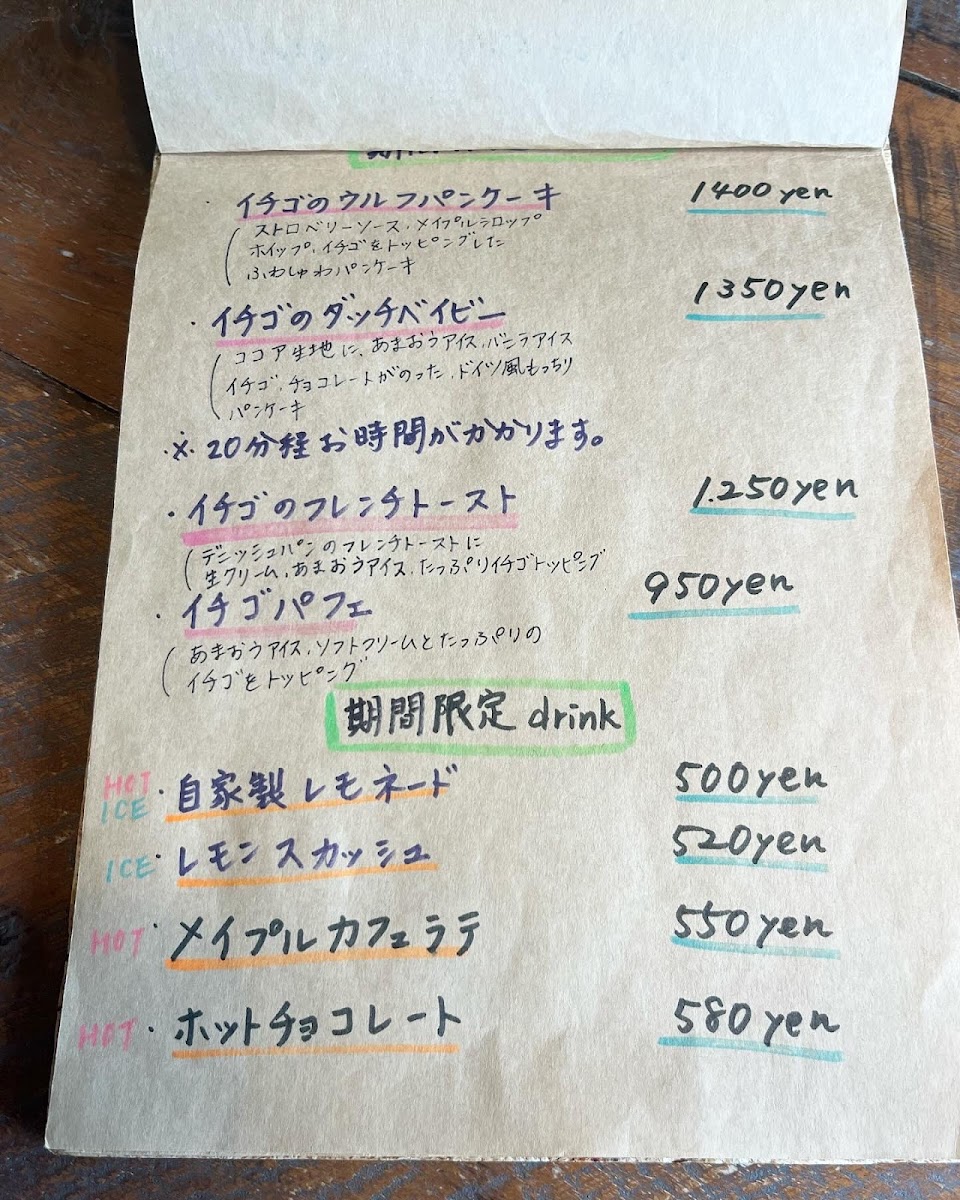 イチゴのウルフパンケーキ 1400yen
ストロベリーソース、メイプルシロップ
ホイップ、イチゴをトッピングした
ふわしゅわパンケーキ
イチゴのダッチベイビー 1350yen
ココア生地に、あまおうアイス、バニラアイス
イチゴ、チョコレートがのった、ドイツ風もっちり
パンケーキ
※20分程お時間がかかります。
・イチゴのフレンチトースト 1.250yen
デニッシュパンのフレンチトーストに
生クリーム、あまおうアイス、たっぷりイチゴトッピング
・イチゴパフェ 950yen
あまおうアイス、ソフトクリームとたっぷりの
イチゴをトッピング
期間限定 drink
HOT ICE ・自家製レモネード 500yen
ICE ・レモンスカッシュ 520yen
HOT ・メイプルカフェラテ 550yen
HOT ・ホットチョコレート 580yen